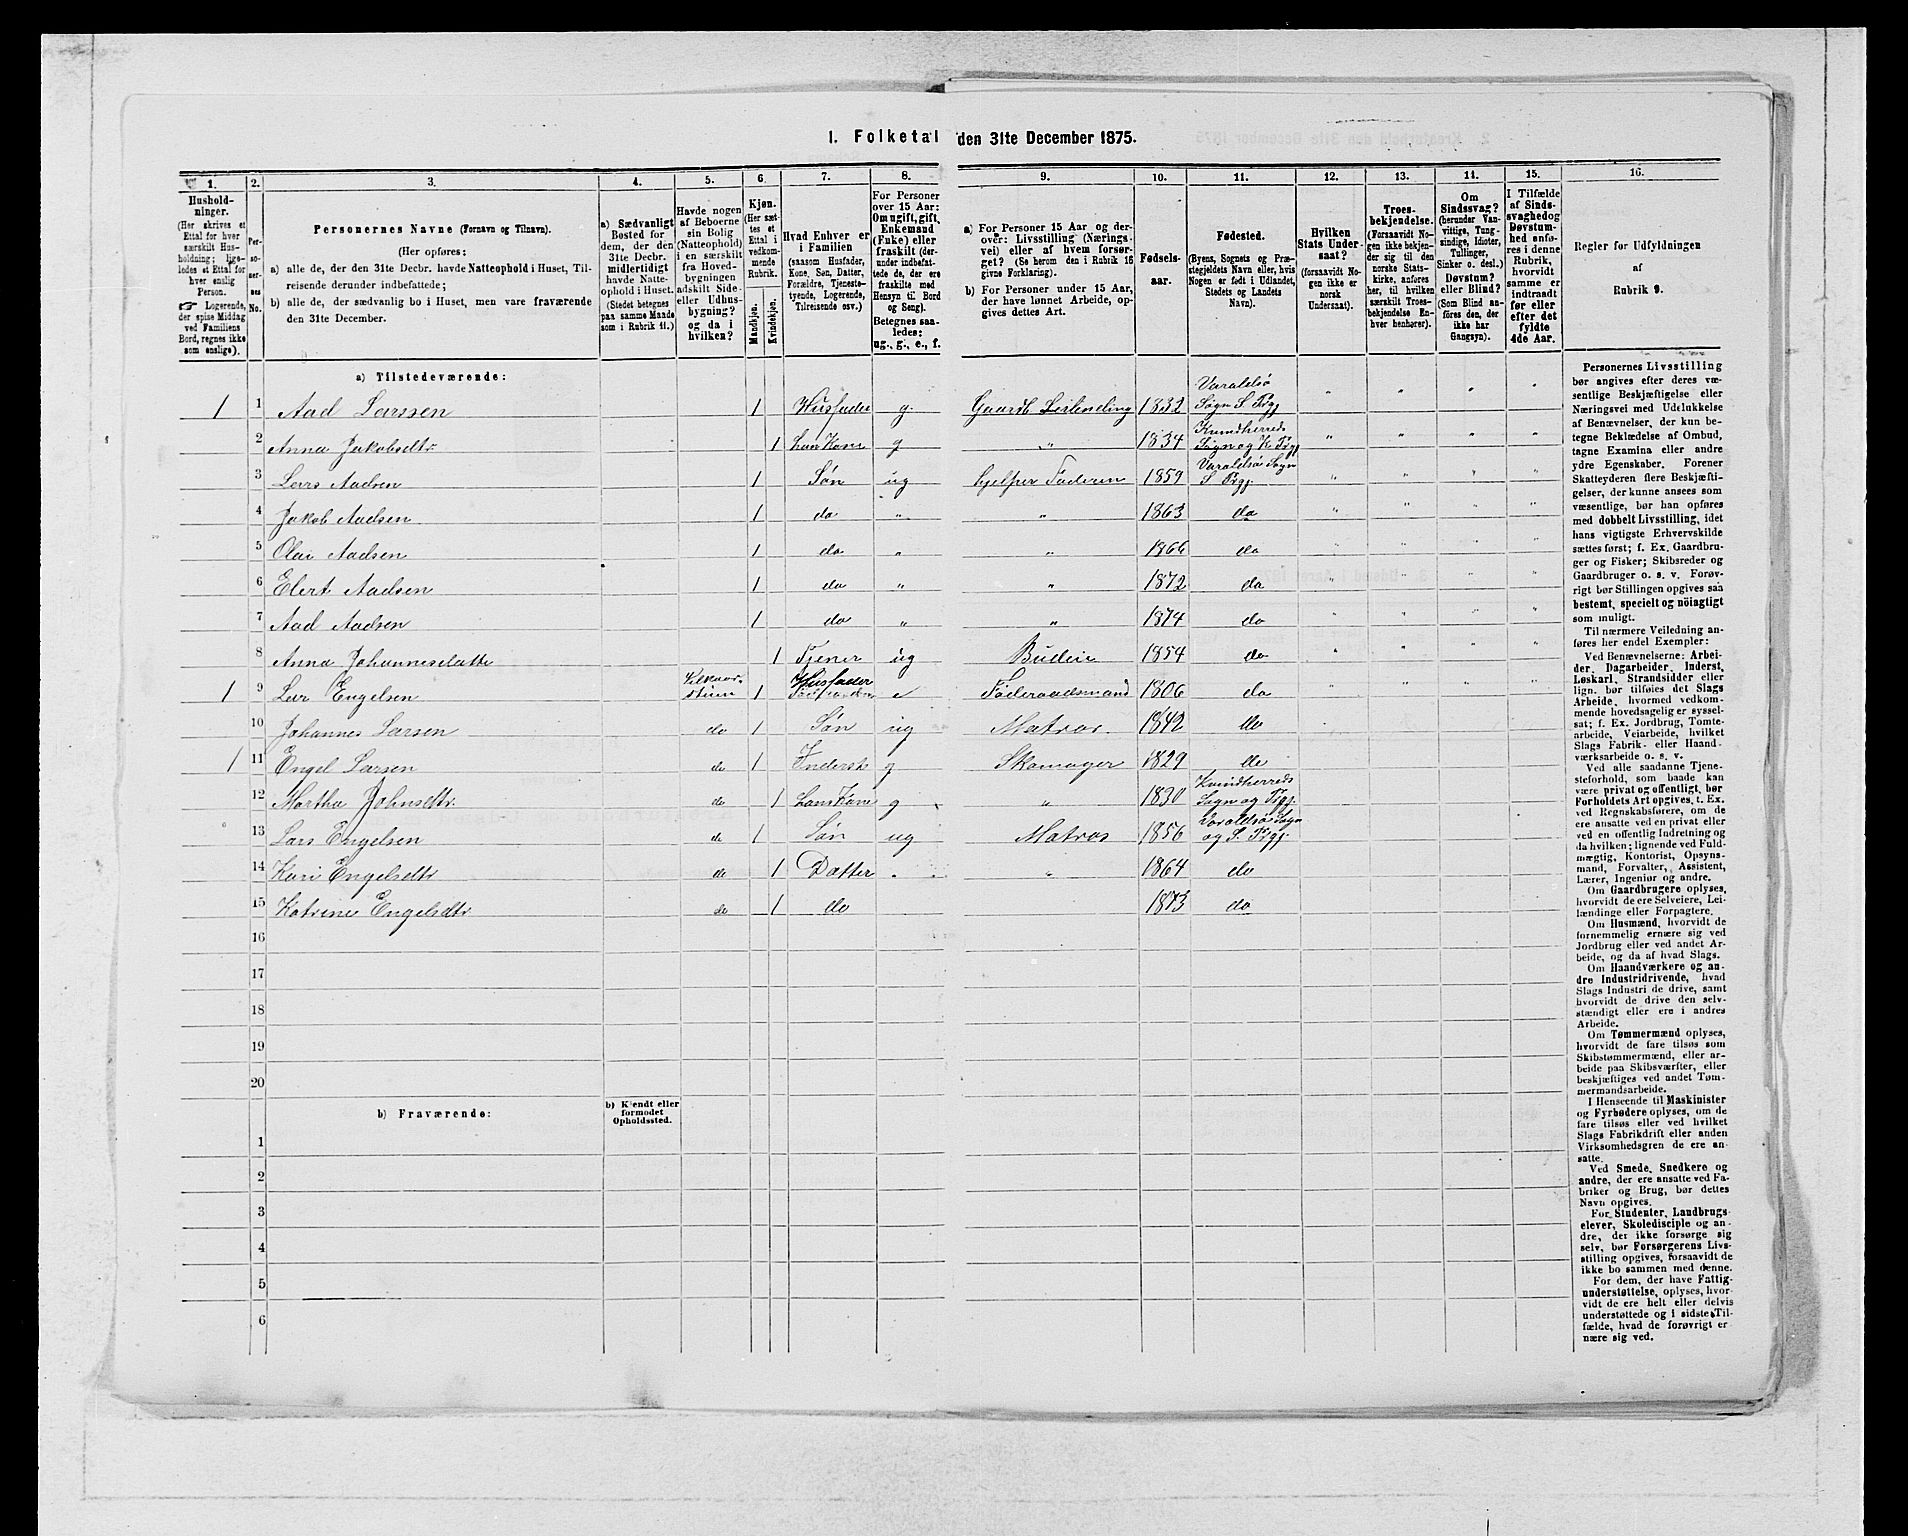 1. Folketal den 31te December 1875.
1. 2. 3. 4. 5. 6. 7. 8. 9. 10. 11. 12. 13. 14. 15. 16.
Hushold-
ninger.
(Her skrives et
Ettal for hver
særskilt Hus-
holdning; lige-
ledes et Ettal for
hver enslig
Person.
☞ Logerende,
der spise Middag
ved Familiens
Bord, regnes ikke
som enslige).
Per-
so-
ner-
nes
No.
Personernes Navne (Fornavn og Tilnavn).
(Her opføres:
a) alle de, der den 31te Decbr. havde Natteophold i Huset, Til-
reisende derunder indbefattede;
b) alle de, der sædvanlig bo i Huset, men vare fraværende
den 31te December.
a) Sædvanligt
Bosted for
dem, der den
31te Decbr.
midlertidigt
havde Natte-
ophold i Huset.
(Stedet betegnes
paa samme Maade
som i Rubrik 11.)
Havde nogen
af Beboerne
sin Bolig
(Natteophold)
i en særskilt
fra Hoved-
bygningen
adskilt Side-
eller Udhus-
bygning?
og da i
hvilken?
Kjøn.
(Her sæt-
tes et
Ettal i
vedkom-
mende
Rubrik.
Mandkjøn.
Kvindekjøn.
Hvad Enhver er
i Familien
(saasom Husfader,
Kone, Søn, Datter,
Forældre, Tjeneste-
tyende, Logerende,
Tilreisende osv.)
For Personer
over 15 Aar:
Om ugift, gift,
Enkemand
(Enke) eller
fraskilt (der-
under indbefat-
tede de, der ere
fraskilte med
Hensyn til Bord
og Seng).
Betegnes saa-
ledes:
ug., g., e., f.
a) For Personer 15 Aar og der-
over: Livsstilling (Nærings-
vei) eller af hvem forsør-
get? (Se herom den i Rubrik 16
givne Forklaring).
b) For Personer under 15 Aar,
der have lønnet Arbeide, op-
gives dettes Art.
Fødsels-
aar.
Fødested.
(Byens, Sognets og Præ-
stegjeldets Navn eller, hvis
Nogen er født i Udlandet,
Stedets og Landets
Navn).
Hvilken
Stats Under-
saat?
(forsaavidt No-
gen ikke er
norsk
Undersaat).
Troes-
bekjendelse.
(Forsaavidt No-
gen ikke bekjen-
der sig til den
norske Stats-
kirke, anføres
her, til hvilken
særskilt Troes-
bekjendelse En-
hver henhører).
Om
Sindssvag?
(herunder Van-
vittige, Tung-
sindige, Idioter,
Tullinger,
Sinker o. desl.)
Døvstum?
eller Blind?
(Som Blind an-
føres den, der
ikke har
Gangsyn).
I Tilfælde
af Sinds-
svaghed og
Døvstum-
hed anfø-
res i denne
Rubrik,
hvorvidt
samme er
indtraadt
før eller
efter det
fyldte
4de Aar.
Regler for Udfyldningen
af
Rubrik 9.
a) Tilstedeværende:
1 1 Aad Larssen 1 Husfader g. Gaardb Leilending 1832 Varaldsø Sogn S Prgj
2 Anna Jakobsdtr 1 hans Kone g " 1834 Kvindherreds Sogn og K. Prgj
3 Lars Aadsen 1 Søn ug hjelper Faderen 1859 Varaldsø Sogn S Prgj.
4 Jakob Aadsen 1 do " " 1863 do
5 Olai Aadsen 1 do " " 1866 do
6 Elert Aadsen 1 do " " 1872 do
7 Aad Aadsen 1 do " " 1874 do
8 Anna Johannesdatte 1 Tjener ug Budeie 1854 do
1 9 Lar Engelsen 1 Husfader e Føderaadsmand 1806 do
10 Johannes Larsen do 1 Søn ug Matros. 1842 do
1 11 Engel Larsen do 1 Inderst g Skomager 1829 do
12 Martha Johnsdtr. do 1 hans Kone g " 1830 Kvindherreds Sogn og Prgj.
13 Lars Engelsen do 1 Søn ug Matros 1856 Varaldsø Sogn og S. Prgj.
14 Kari Engelsdtr do 1 Datter " " 1864 do
15 Katrine Engelsdtr do 1 do 1873 do
16
17
18
19
20
b) Fraværende:
b) Kjendt eller
formodet
Opholdssted.
1
2
3
4
5
6
Personernes Livsstilling
bør angives efter deres væ-
sentlige Beskjæftigelse eller
Næringsvei med Udelukkelse
af Benævnelser, der kun be-
tegne Beklædelse af Ombud,
tagne Examina eller andre
ydre Egenskaber. Forener
Skatteyderen flere Beskjæfti-
gelser, der kunne ansees som
væsentlige, bør han opføres
med dobbelt Livsstilling, idet
hans vigtigste Erhvervskilde
sættes først; f. Ex. Gaardbru-
ger og Fisker; Skibsreder og
Gaardbruger o. s. v. Forøv-
rigt bør Stillingen opgives saa
bestemt, specielt og nöiagtigt
som muligt.
Til nærmere Veiledning an-
føres her endel Exempler:
Ved Benævnelserne: Arbei-
der, Dagarbeider, Inderst,
Løskarl, Strandsidder eller
lign. bør tilføies det Slags
Arbeide, hvormed vedkom-
mende hovedsagelig er syssel-
sat; f. Ex. Jordbrug, Tomte-
arbeide, Veiarbeide, hvilket
Slags Fabrik- eller Haand-
værksarbeide o. s. v.
Ved alle saadanne Tjene-
steforhold, som baade kan
være privat og offentligt, bør
Forholdets Art opgives, t. Ex.
ved Regnskabsførere, om de
ere ansatte ved en privat eller
ved en offentlig Indretning og
da hvilken; lignende ved Fuld-
mægtig, Kontorist, Opsyns-
mand, Forvalter, Assistent,
Lærer, Ingeniør og andre.
Om Gaardbrugere oplyses,
hvorvidt de ere Selveiere, Lei-
lændinge eller Forpagtere.
Om Husmænd, hvorvidt de
fornemmelig ernære sig ved
Jordbrug eller ved andet Ar-
beide, og da af hvad Slags.
Om Haandværkere og an-
dre Industridrivende, hvad
Slags Industri de drive, samt
hvorvidt de drive den selv-
stændigt eller ere i andres
Arbeide.
Om Tømmermænd oplyses,
hvorvidt de fare tilsøs som
Skibstømmermænd, eller ar-
beide paa Skibsværfter, eller
beskjæftiges ved andet Tøm-
mermandsarbeide.
I Henseende til Maskinister
og Fyrbødere oplyses, om de
fare tilsøs eller ved hvilket
Slags Fabrikdrift eller anden
Virksomhedsgren de ere an-
satte.
Ved Smede, Snedkere og
andre, der ere ansatte ved Fa-
briker og Brug, bør dettes
Navn opgives.
For Studenter, Landbrugs-
elever, Skoledisciple og an-
dre, der ikke forsørge sig
selv, bør Forsørgerens Livs-
stilling opgives, forsaavidt de
ikke bo sammen med denne.
For dem, der have Fattig-
understøttelse, oplyses, hvor-
vidt de ere helt eller delvis
understøttede og i sidste Til-
fælde, hvad de forøvrigt er
nære sig ved.